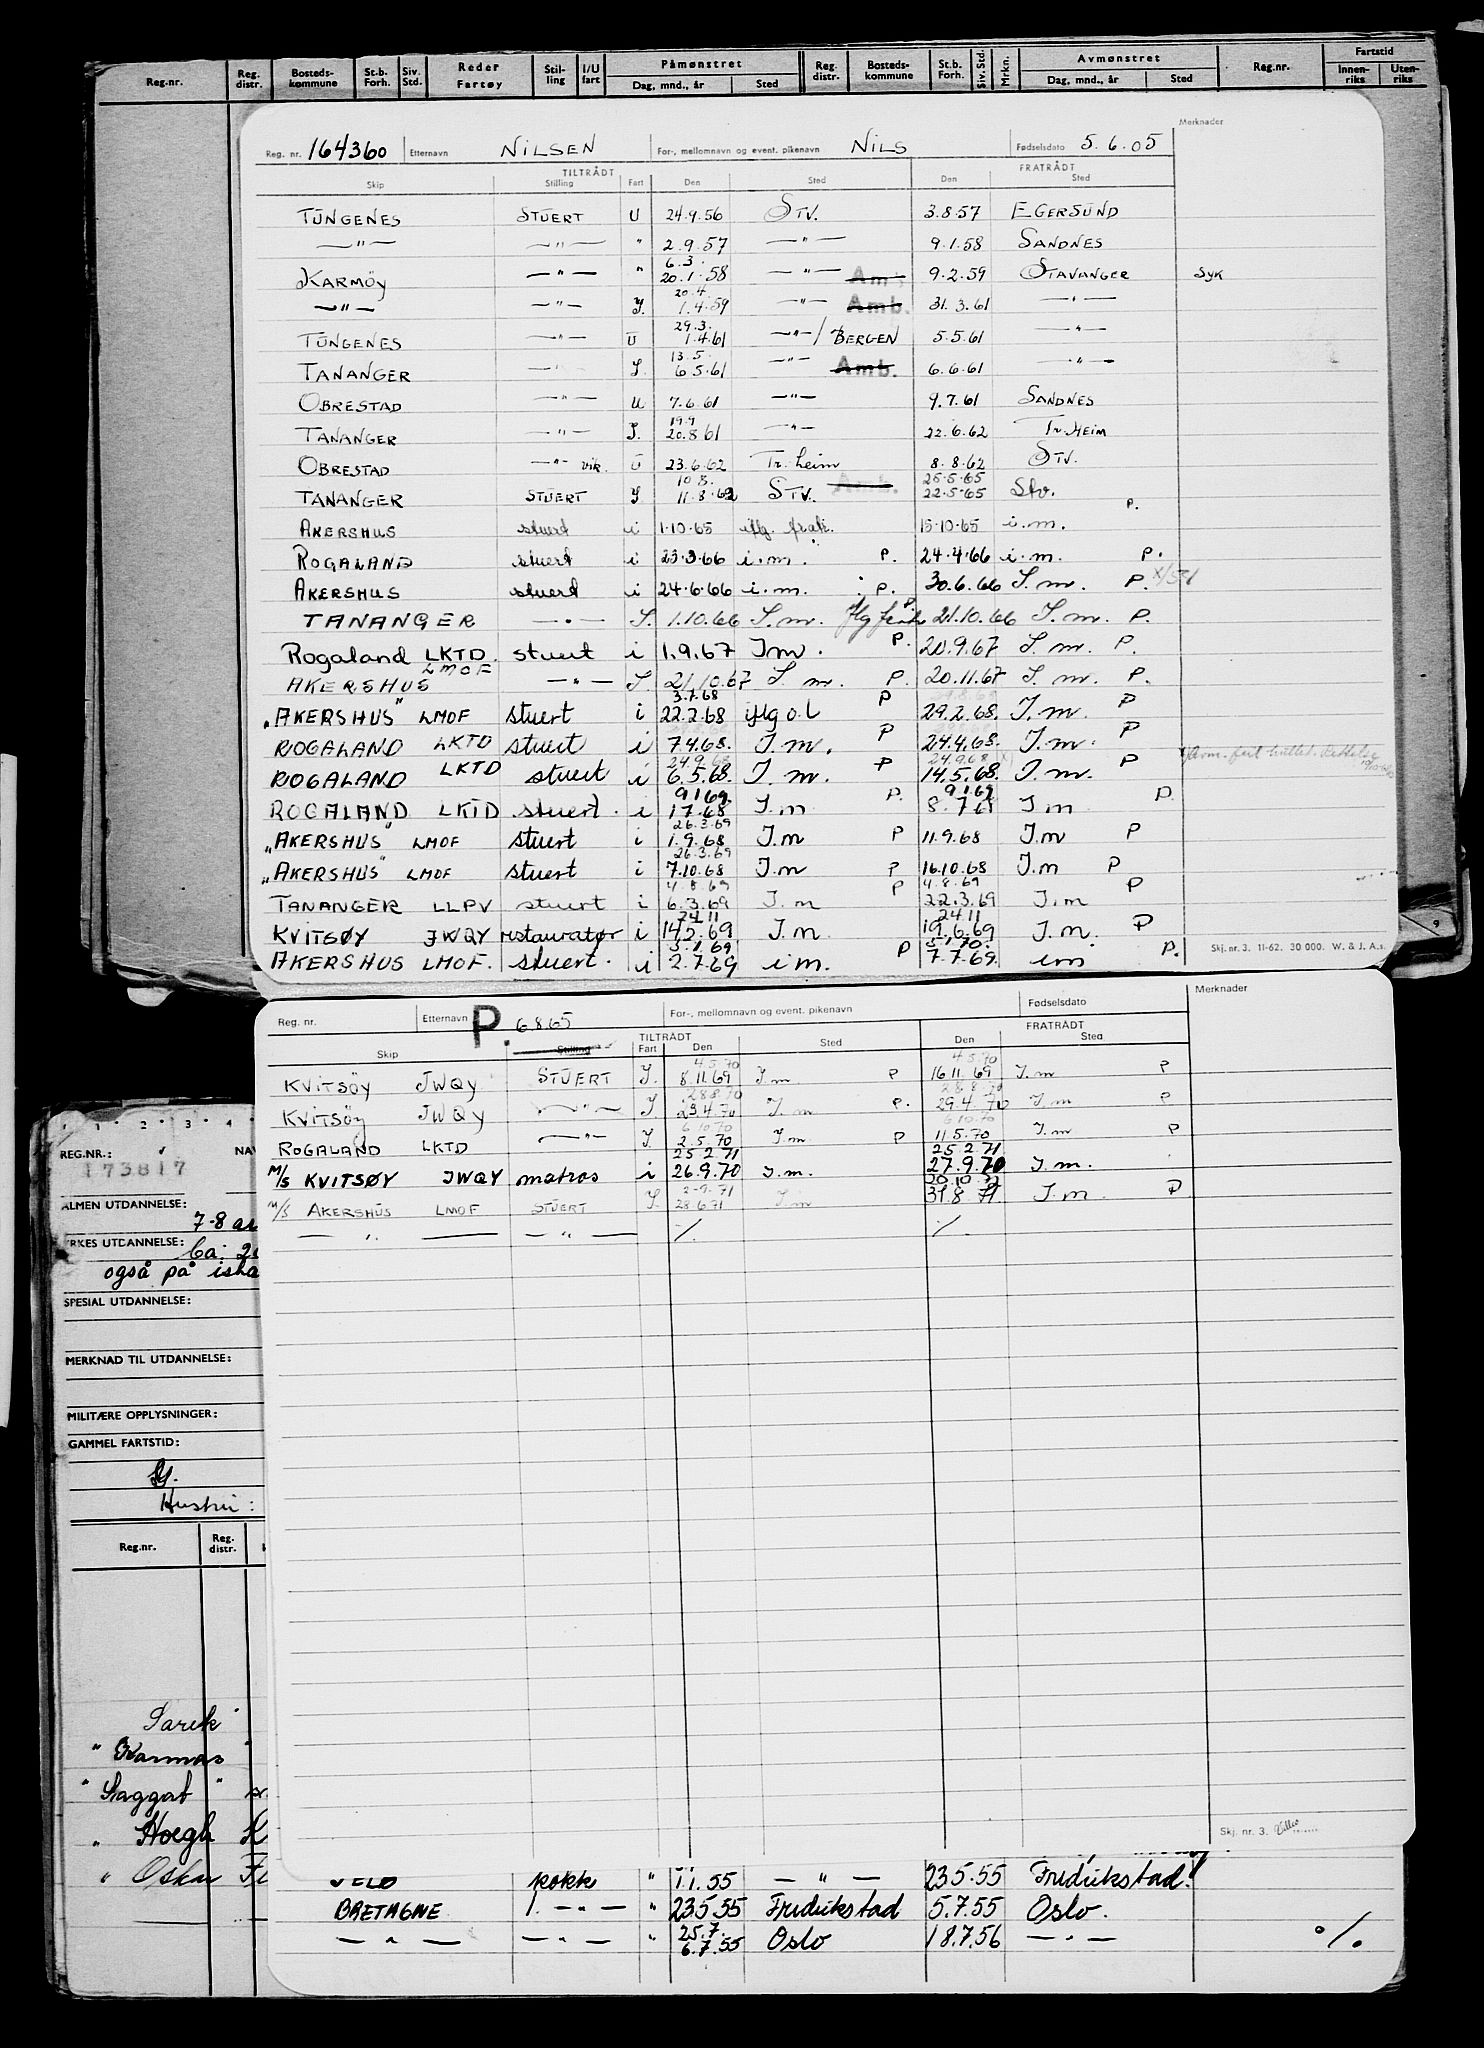 Reg.nr. Reg. distr. Bosteds-kommune St.b. Forh. Siv. Std. Reder Fartøy Stil-ling I/U fart Påmønstret Dag, mnd., år Sted Reg. distr. Bosteds-kommune St.b. Forh. Siv. Std. Mrkn. Avmønstret Dag, mnd., år Sted Reg.nr. Fartstid Innen-riks Uten-riks
Merknader
Reg. nr. 164360 Etternavn NILSEN For-, mellomnavn og event. pikenavn NILS Fødselsdato 5.6.05
TILTRÅDT FRATRÅDT
Skip Stilling Fart Den Sted Den Sted
TUNGENES STUERT U 24.9.56 STV. 3.8.57 EGERSUND
—"— —"— " 2.9.57 —"— 9.1.58 SANDNES
KARMÖY —"— " 6.3. 20.1.58 —"— Amb. 9.2.59 STAVANGER SYK
—"— —"— I. 20.4. 1.4.59 —"— Amb. 31.3.61 —"—
TUNGENES —"— U 29.3. 1.4.61 —"—/BERGEN 5.5.61 —"—
TANANGER —"— I. 13.5. 6.5.61 —"— Amb. 6.6.61 —"—
OBRESTAD —"— U 7.6.61 —"— 9.7.61 SANDNES
TANANGER —"— I. 19.9 20.8.61 —"— 22.6.62 TR.HEIM
OBRESTAD —"— vik. U 23.6.62 Tr.heim 8.8.62 STV.
TANANGER STUERT I 10.8. 11.8.62 STV. Amb. 25.5.65 22.5.65 Stv.
AKERSHUS stuert i 1.10.65 iflg. fratr. 15.10.65 i.m. P.
ROGALAND stuert i 23.3.66 i.m. P. 24.4.66 i.m. P.
AKERSHUS stuert i 24.6.66 i.m. P. 30.6.66 I.m. P.
TANANGER —"— I. 1.10.66 I.m. P. 21.10.66 I.m. P.
Rogaland LKTD. stuert i 1.9.67 I.m. P. 20.9.67 I.m. P.
AKERSHUS LMOF —"— I. 21.10.67 I.m. P. 20.11.67 I.m. P.
"AKERSHUS" LMOF stuert i 3.7.68 22.2.68 iflg o.l P 29.2.68. I.m. P
ROGALAND LKTD stuert i 7.4.68. I.m. P 24.4.68. I.m. P
ROGALAND LKTD stuert i 24.9.68 6.5.68. I.m. P 24.9.68 14.5.68. I.m. P
ROGALAND LKTD stuert. i 9169. 1.7.68 I.m P. 9169 8.7.68 I.m P.
"AKERSHUS" LMOF stuert i 26.3.69 1.9.68 I.m P 11.9.68 I.m P
"AKERSHUS" LMOF stuert i 26.3.69 7.10.68 I.m P 16.10.68 I.m P
TANANGER LLPV stuert i 4.8.69 6.3.69 I.m P 4.8.69 22.3.69 I.m P
KVITSØY JWQY restauratør i 24.11 14.2.69 I.m. 24.11 19.6.69 I.m. P
AKERSHUS LMOF. stuert. i 5.1.69 2.7.69 i m. P 5.1.70. 7.7.69. im P.
Skj. nr. 3. 11-62. 30 000. W. & J. A.s.
9
Merknader
Reg. nr. Etternavn P. 6865 For-, mellomnavn og event. pikenavn Fødselsdato
TILTRÅDT FRATRÅDT
Skip Stilling Fart Den Sted Den Sted
KVITSÖY JWQY STUERT I. 4.5.70 8.11.69 I.m P 4.5.70 16.11.69 I.m P
KVITSÖY JWQY —"— I. 28.8.70 23.4.70 I.m P. 28.8.70 29.4.70 I.m P
ROGALAND LKTD —"— I. 6.10.70 2.5.70 I.m. P 6.10.70 11.5.70 I.m P
M/S KVITSØY JWQY matros i 25.2.71 26.9.70 I.m. 25.2.71 27.9.70 I.m.
M/S AKERSHUS LMOF STUERT I. 28.6.71 I.m 31.8.71. I.m. P
—"— —"— ./. ./.
Skj. nr. 3.
1 2 3 4
REG.NR.: NAV
173817
ALMEN UTDANNELSE:
7-8 
YRKES UTDANNELSE: Ca. 
også på 
SPESIAL UTDANNELSE:
MERKNAD TIL UTDANNELSE:
MILITÆRE OPPLYSNINGER:
GAMMEL FARTSTID:
Hustru:
Reg.nr. Reg. distr.
Sarek"
"Karmøs"
"Saggat"
" Hoegh H
" Oskar
VELO kokk " 1.1.55 —"— 23.5.55 Fredrikstad.
BRETAGNE 1. —"— " 23.5.55 Fredrikstad 5.7.55 Oslo.
—"— —"— " 25.7. 6.7.55 Oslo 18.7.56 —"— %.